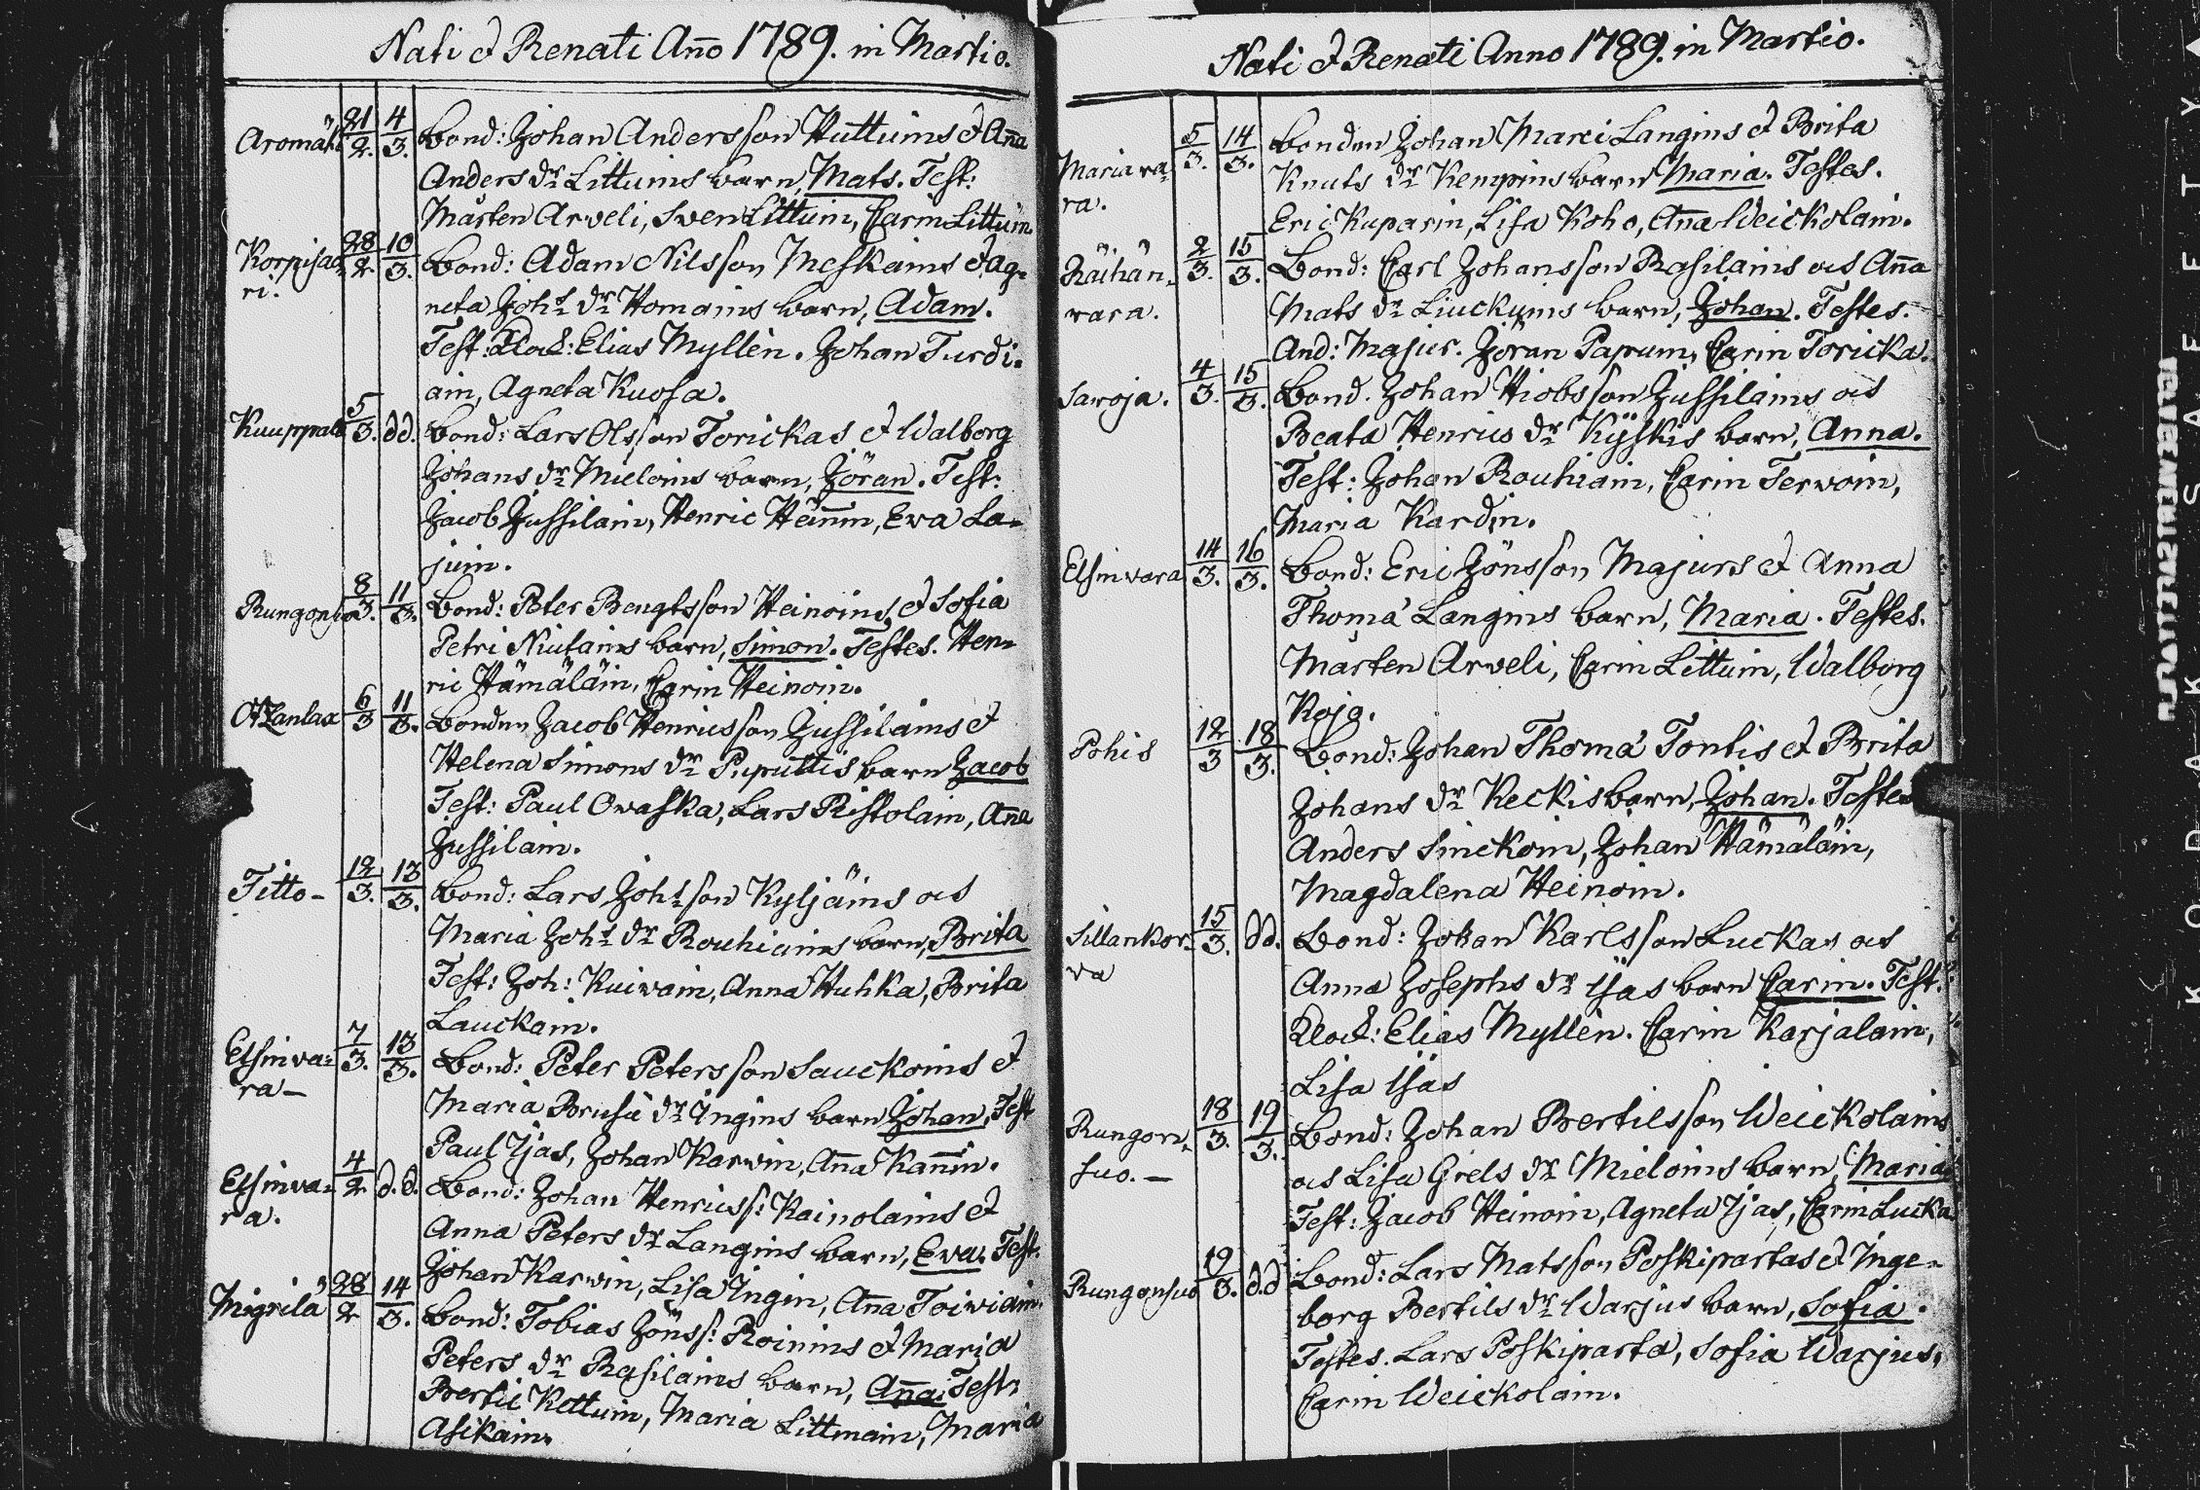 Nati & Renati Año 1789. in Martio.
Aromäki 21/2. 4/3. Bond: Johan Andersson Huttuins & Aña
Anders dr Littuins barn, Mats. Test:
Mårten Arveli, Sven Littuin, Carin Littuin.
Korpisaa- 28/2. 10/3. Bond: Adam Nilsson Meskains & Ag-
ri. neta Johs dr Homains barn, Adam.
Test: Klock: Elias Myllen. Johan Turdi-
ain, Agneta Kuosa.
Kauppala 5/3. dd. Bond: Lars Olsson Torickas & Walborg
Johans dr Mieloins barn, Jöran. Test:
Jacob Jussilain, Henric Heinin, Eva La-
juin.
Rungonsuo 8/3. 11/3. Bond: Peter Bengtsson Heinoins & Sofia
Petri Niutains barn, Simon. Testes. Hen-
ric Hämäläin, Carin Heinoin.
6/3 11/3. Bonden Jacob Henricsson Jussilains &
Helena Simons dr Puputtis barn Jacob
Test: Paul Owaska, Lars Ristolain, Aña
Jussilain.
Titto- 12/3. 13/3. Bond: Lars Johsson Kyljäins och
Maria Johs dr Rouhiains barn, Brita
Test: Joh: Kuivain, Anna Huhka, Brita
Lauckain.
Elsinva- 7/3. 13/3. Bond: Peter Petersson Sauckoins &
ra- Maria Brusii dr Ingins barn Johan, Test
Paul Ijas, Johan Karvin, Aña Kañin.
Elsinva- 4/2 d.d. Bond: Johan Henricss: Kainolains &
ra. Anna Peters dr Langins barn, Eva. Test.
Johan Karvin, Lisa Ingin, Aña Toiviain.
Migrilä 28/2 14/3. Bond: Tobias Jönss: Roinins & Maria
Peters dr Rasilains barn, Aña. Test:
Bertil Kettuin, Maria Littmain, Maria
Asikain.
Nati & Renati Anno 1789. in Martio.
Mariava- 5/3. 14/3. Bonden Johan Marci Langins & Brita
ra. Knuts dr Kempins barn Maria. Testes.
Eric Kuparin, Lisa Koho, Aña Weickolain.
Räihän- 2/3. 15/3. Bond: Carl Johansson Rasilains och Aña
vara. Mats dr Liuckuins barn, Johan. Testes.
And: Majur. Jöran Papuin, Carin Toricka.
Saroja. 4/3. 15/3. Bond. Johan Hiobsson Jussilains och
Beata Henrics dr Kÿskis barn, Anna.
Test: Johan Rouhiain, Carin Tervoin,
Maria Kardin.
Elsinvara 14/3. 16/3. Bond: Eric Jönsson Majurs & Anna
Thomæ Langins barn, Maria. Testes.
Mårten Arveli, Carin Littuin, Walborg
Kojo.
Pohis 12/3 18/3. Bond: Johan Thomæ Tontis & Brita
Johans dr Keckis barn, Johan. Testes
Anders Sinckoin, Johan Hämäläin,
Magdalena Heinoin.
Sillankor- 15/3. dd. Bond: Johan Karlsson Luckas och
va Anna Josephs dr Ijas barn Carin. Test:
Klock: Elias Myllen. Carin Karjalain,
Lisa Ijas
Rungon- 18/3. 19/3. Bond: Johan Bertilsson Weickolains
suo.- och Lisa Grels dr Mieloins barn, Maria
Test: Jacob Heinoin, Agneta Ijas, Carin Lucka
Rungonsuo 19/3. d.d Bond: Lars Matsson Poskipartas & Inge-
borg Bertils dr Warjus barn, Sofia.
Testes. Lars Poskiparta, Sofia Warjus,
Carin Weickolain.
KODAK SAFETY